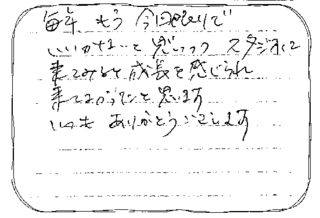 毎年 もう 今回だけで
いいかな…と 思いつつ スタジオに
来てみると 成長を感じられ
来てよかったと思います
いつも ありがとうございます